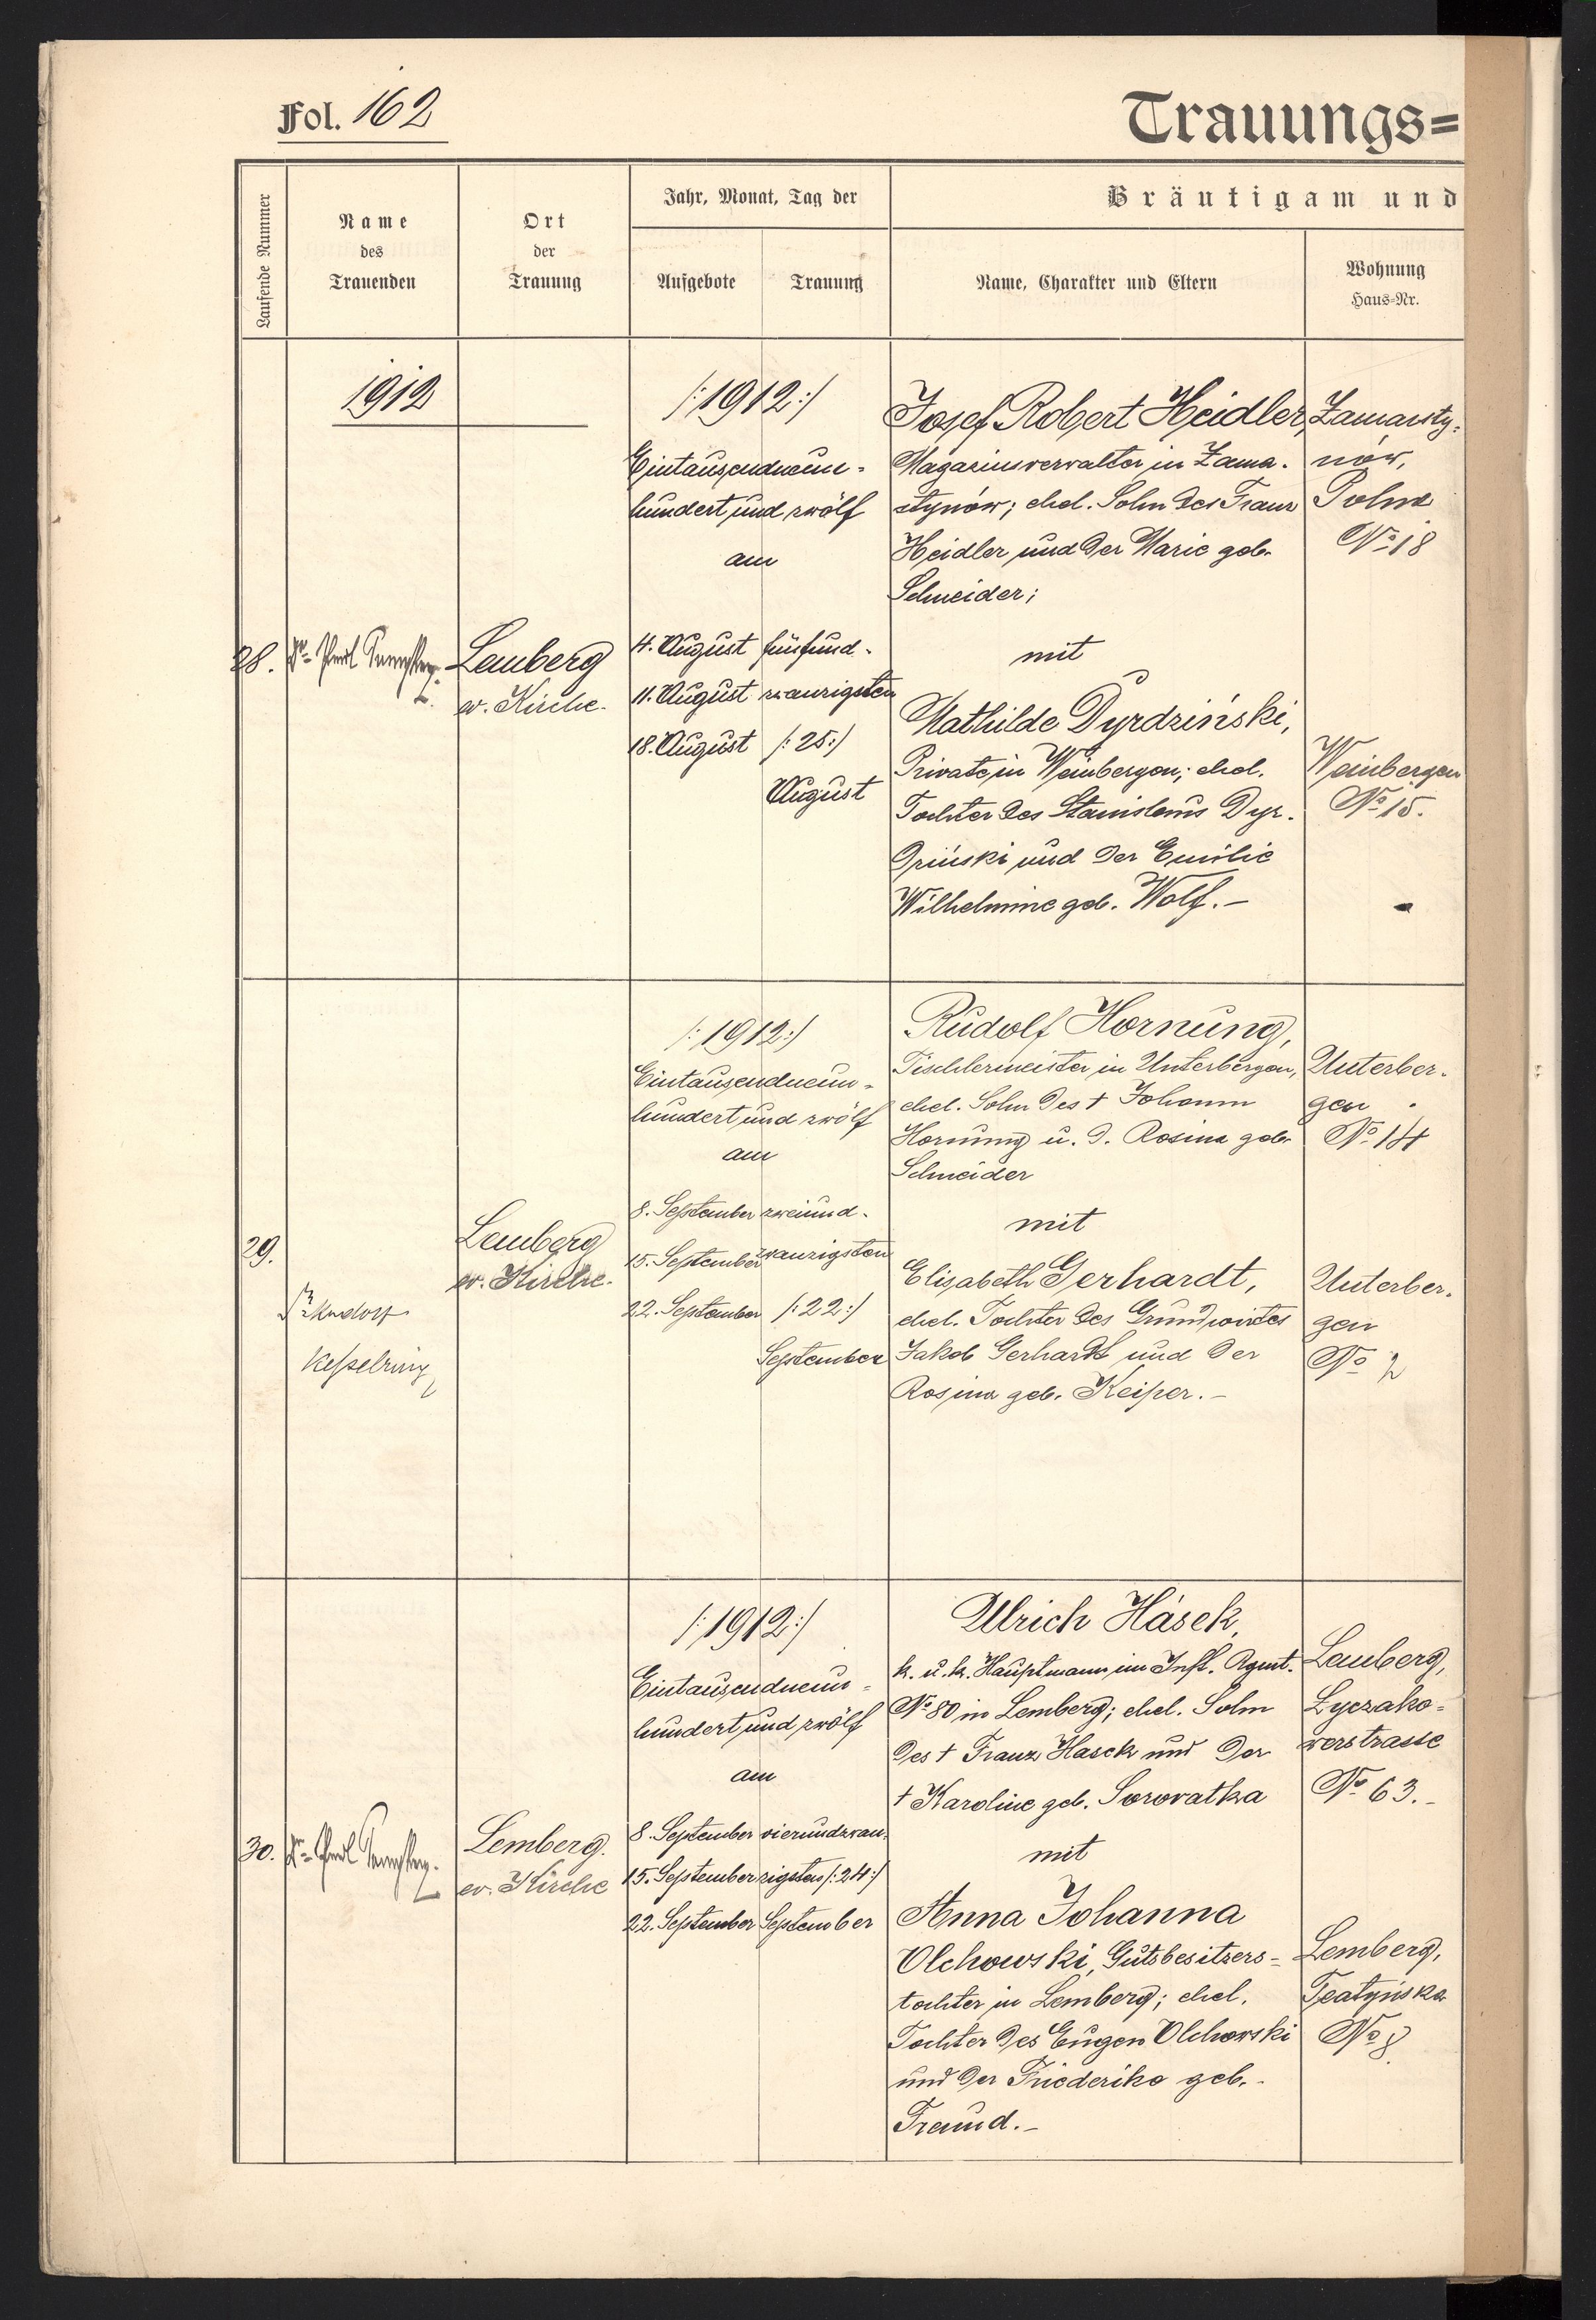 Fol. 162
Trauungs=
Laufende Nummer
Name
des
Trauenden
Ort
der
Trauung
Jahr, Monat, Tag der
Aufgebote
Trauung
Bräutigam und
Name, Charakter und Eltern
Wohnung
Haus-Nr.
1912
28.
Lemberg
ev. Kirche.
/:1912:/
Eintausendneun-
hundert und zwölf
am
4. August
11. August
18. August
fünfund-
zwanzigsten
/:25:/
August
Josef Robert Heidler,
Magazinsverwalter in Zama-
stynów; ehel. Sohn des Franz
Heidler und der Marie geb.
Schneider;
mit
Mathilde Dyrdziński,
Private in Weinbergen; ehel.
Tochter des Stanislaus Dyr-
dziński und der Emilie
Wilhelmine geb. Wolf.-
Zamarsty-
nów,
Polna
No 18
Weinbergen
No 15.
29.
Kesselring
Lemberg
ev. Kirche.
/:1912:/
Eintausendneun-
hundert und zwölf
am
8. September
15. September
22. September
zweiund-
zwanzigsten
/:22:/
September
Rudolf Hornung,
Tischlermeister in Unterbergen,
ehel. Sohn des † Johann
Hornung u. d. Rosina geb.
Schneider
mit
Elisabeth Gerhardt,
ehel. Tochter des Grundwirtes
Jakob Gerhardt und der
Rosina geb. Keiper.-
Unterber-
gen
No 14
Unterber-
gen
No 2
30.
Lemberg.
ev. Kirche
/:1912:/
Eintausendneun-
hundert und zwölf
am
8. September
15. September
22. September
vierundzwan-
zigsten /:24:/
September
Ulrich Hásek,
k. u. k. Hauptmann im Inft. Rgmt.
No 80 in Lemberg; ehel. Sohn
des † Franz Hasek und der
† Karoline geb. Sorovatka
mit
Anna Johanna
Olchowski, Gutsbesitzers-
tochter in Lemberg; ehel.
Tochter des Eugen Olchowski
und der Friederike geb.
Freund.-
Lemberg,
Lyczako-
werstrasse
No 63.-
Lemberg,
Teatyńska
No 8.